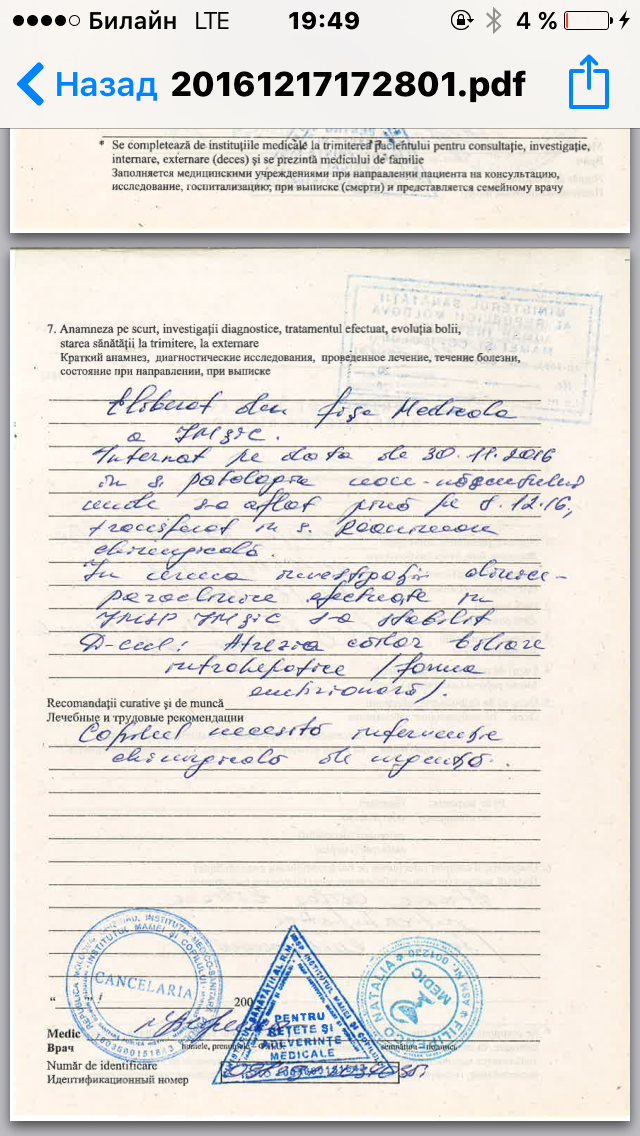 Билайн LTE 19:49 4 %
Назад 20161217172801.pdf
* Se completează de instituțiile medicale la trimiterea pacientului pentru consultație, investigație,
internare, externare (deces) și se prezintă medicului de familie
Заполняется медицинскими учреждениями при направлении пациента на консультацию,
исследование, госпитализацию, при выписке (смерти) и представляется семейному врачу
7. Anamneza pe scurt, investigații diagnostice, tratamentul efectuat, evoluția bolii,
starea sănătății la trimitere, la externare
Краткий анамнез, диагностические исследования, проведенное лечение, течение болезни,
состояние при направлении, при выписке
Eliberat din fișa Medicala
a IMșiC.
Internat pe data de 30.11.2016
în s. patologia nou-născutului
unde s-a aflat pînă pe 8.12.16,
transferat in s. Reanimare
chirurgicală.
In urma investigații clinice-
paraclinice efectuate in
IMSP IMșiC s-a stabilit
D-cul: Atrezia căilor biliare
intrahepatice (forma
).
Recomandații curative și de muncă
Лечебные и трудовые рекомендации
Copilul necesită intervenție
chirurgicală de urgență.
CANCELARIA
INSTITUTUL MAMEI ȘI COPILULUI
PENTRU
REȚETE ȘI
ADEVERINȚE
MEDICALE
MEDIC
NATALIA
" " 200
Medic
Врач
Număr de identificare
Идентификационный номер